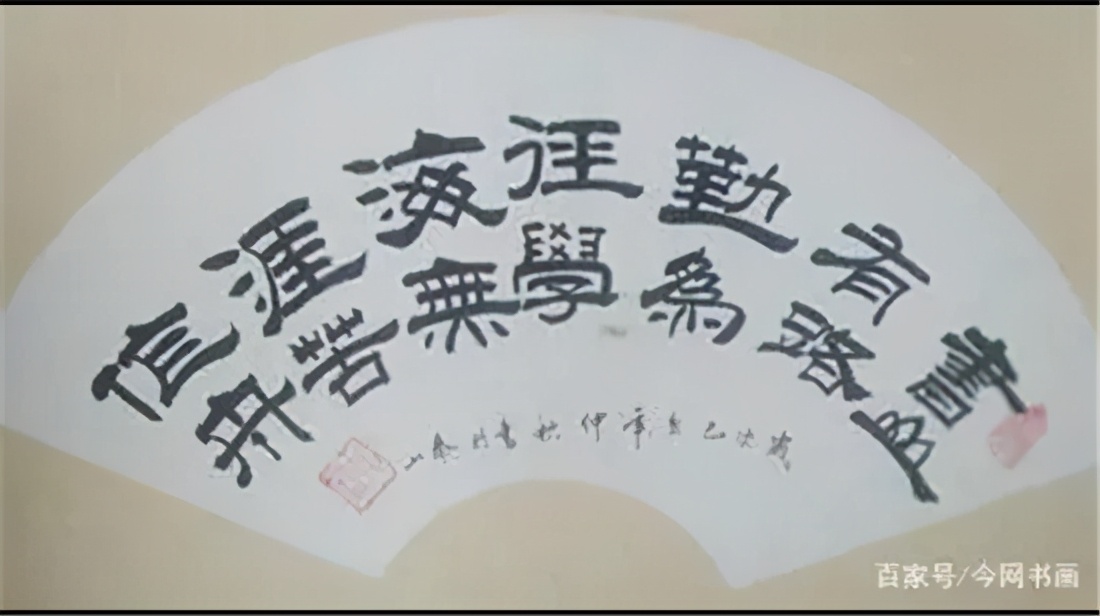 書山
有路
勤爲
徑學
海無
涯苦
作舟
歲次己亥年仲秋書於泰山
百家号/今网书画